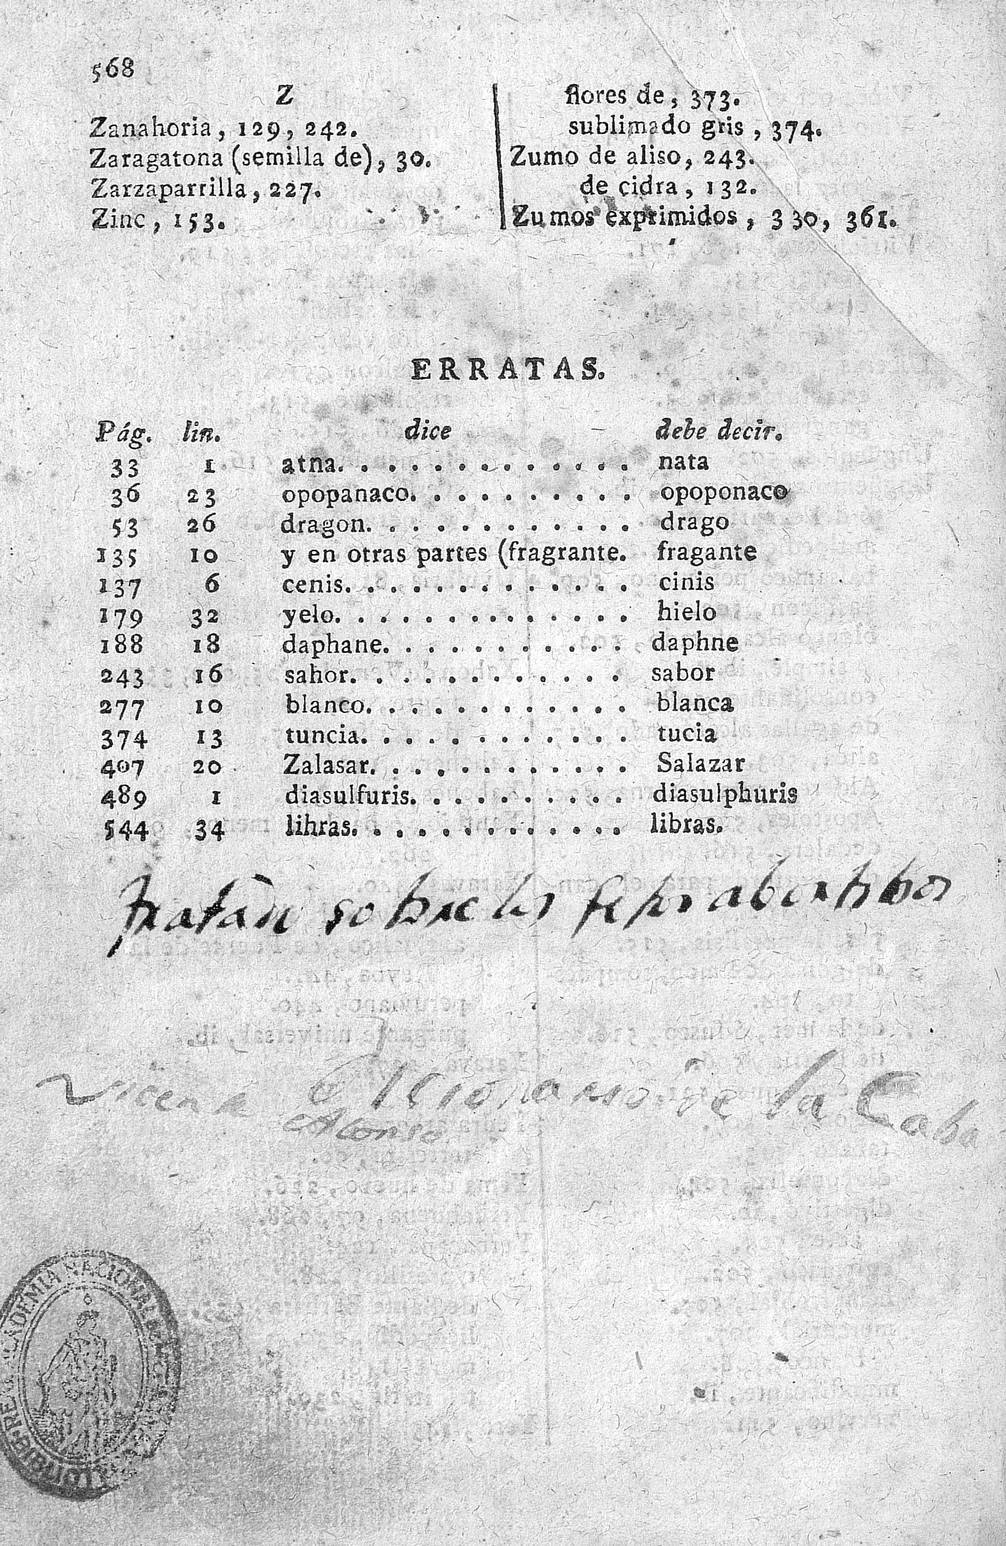 568
Z
Zanahoria, 129, 242.
Zaragatona (semilla de), 30.
Zarzaparrilla, 227.
Zinc, 153.
flores de, 373.
sublimado gris, 374.
Zumo de aliso, 243.
de cidra, 132.
Zumos exprimidos, 330, 361.
ERRATAS.
Pág. lin. dice debe decir.
33 1 atna. . . . . . . . . . . . . nata
36 23 opopanaco. . . . . . . . . . opoponaco
53 26 dragon. . . . . . . . . . . . drago
135 10 y en otras partes (fragrante. fragante
137 6 cenis. . . . . . . . . . . . . cinis
179 32 yelo. . . . . . . . . . . . . hielo
188 18 daphane. . . . . . . . . . . daphne
243 16 sahor. . . . . . . . . . . . sabor
277 10 blanco. . . . . . . . . . . . blanca
374 13 tuncia. . . . . . . . . . . . tucia
407 20 Zalasar. . . . . . . . . . . Salazar
489 1 diasulfuris. . . . . . . . . . diasulphuris
544 34 lihras. . . . . . . . . . . . libras.
sobre los
de la
Alonso
REAL ACADEMIA NACIONAL DE